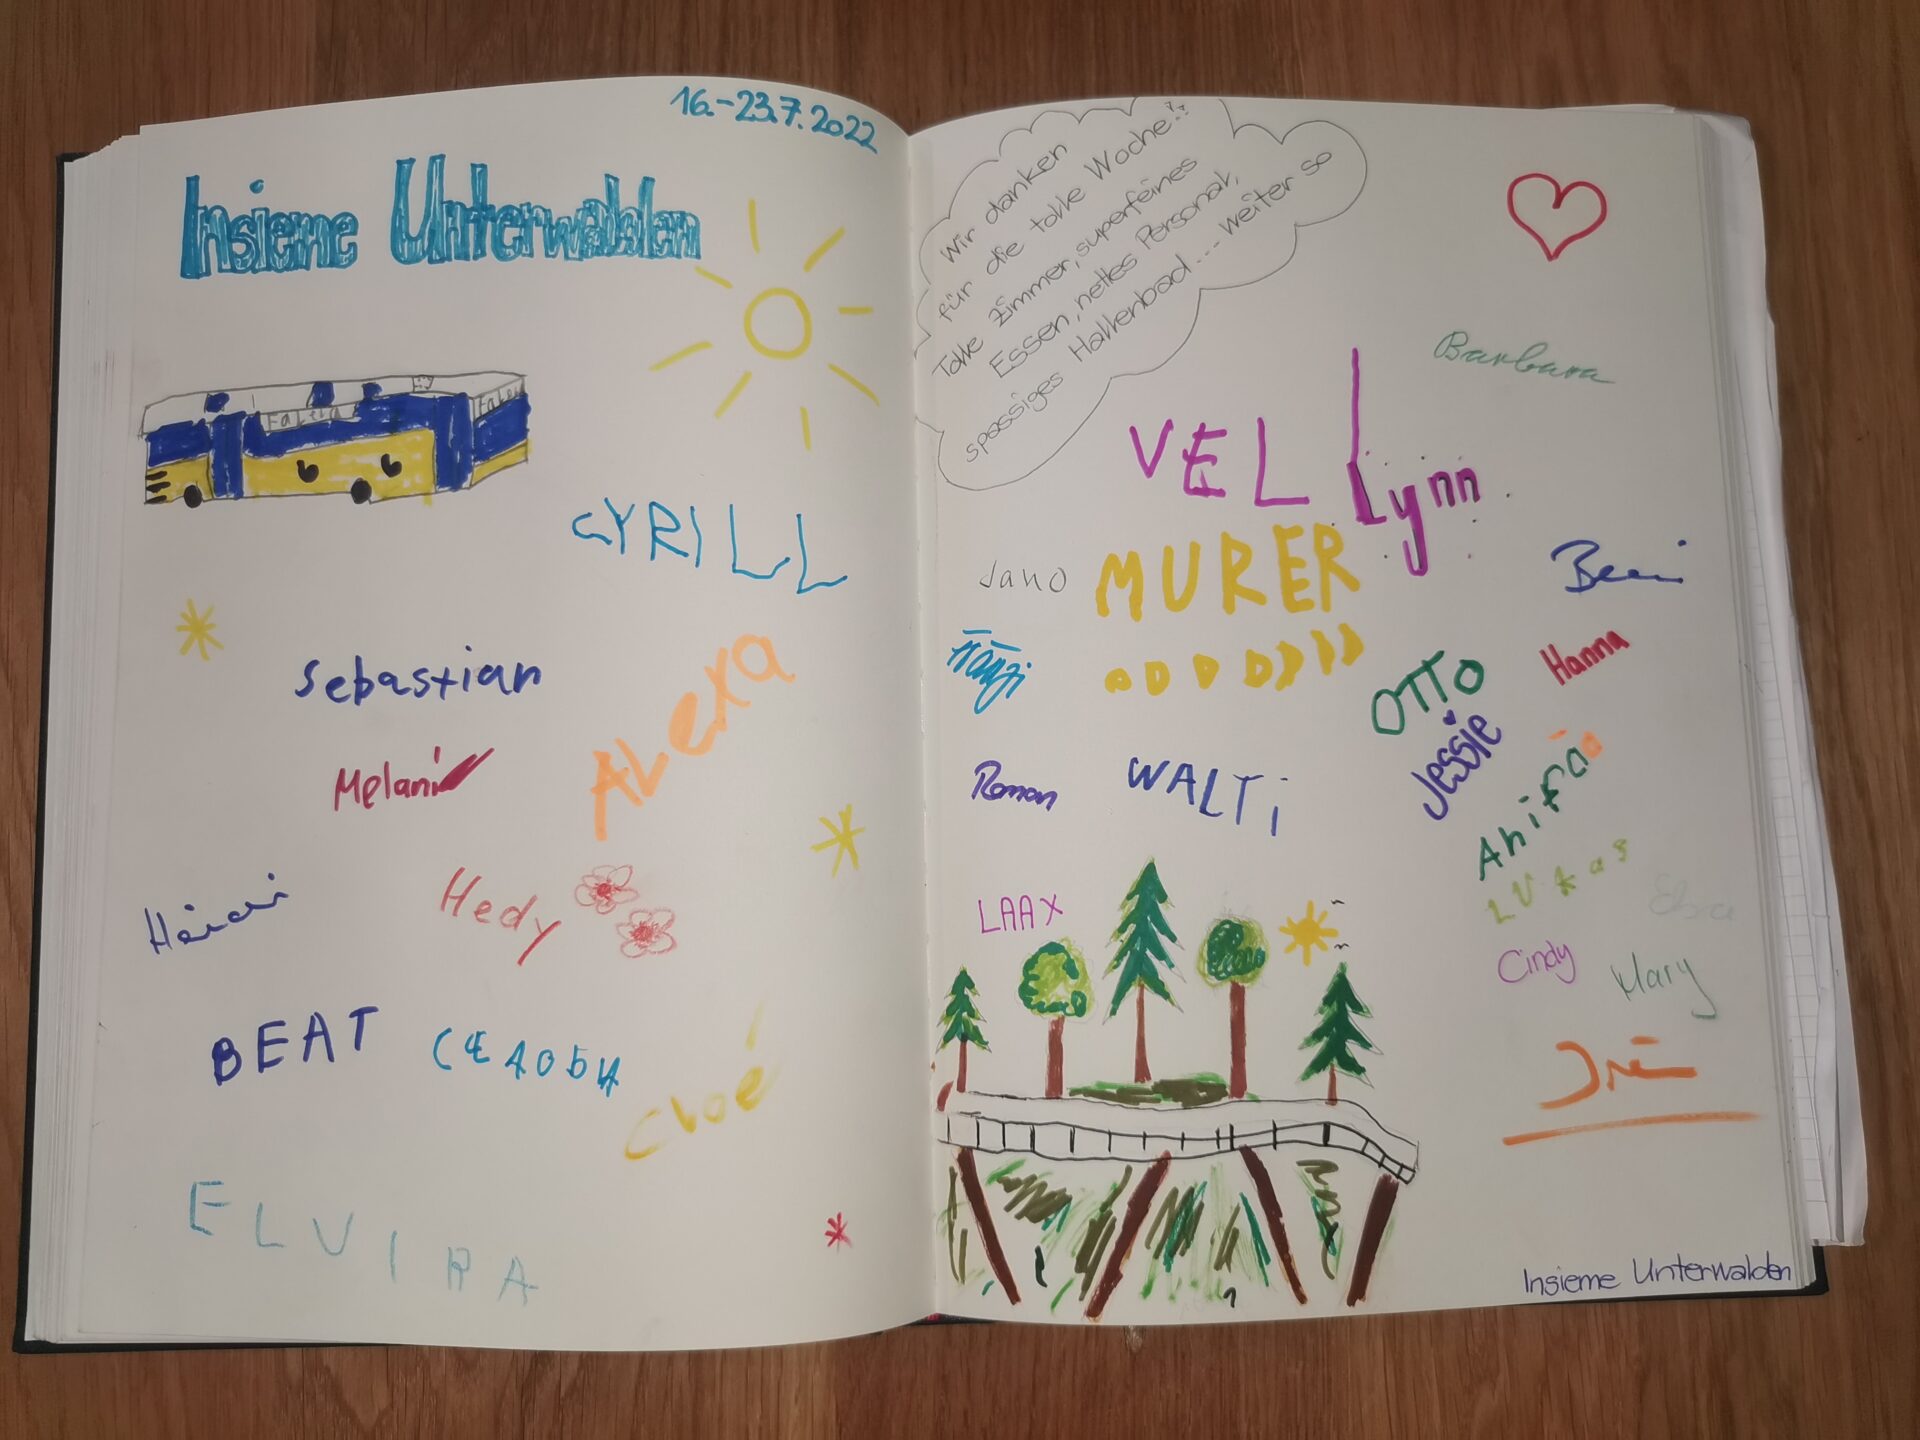 16.-23.7.2022
Insieme Unterwalden
CYRILL
Sebastian
ALexa
Melanie
Hedy
BEAT
Cloé
ELVIRA
Wir danken
für die tolle Woche!!
Tolle Zimmer, superfeines
Essen, nettes Personal,
spassiges Hallenbad... weiter so
Barbara
VEL
Lynn
Jano
MURER
Hanna
OTTO
Jessie
Roman
WALTi
LUKas
LAAX
Cindy
Mary
Insieme Unterwalden